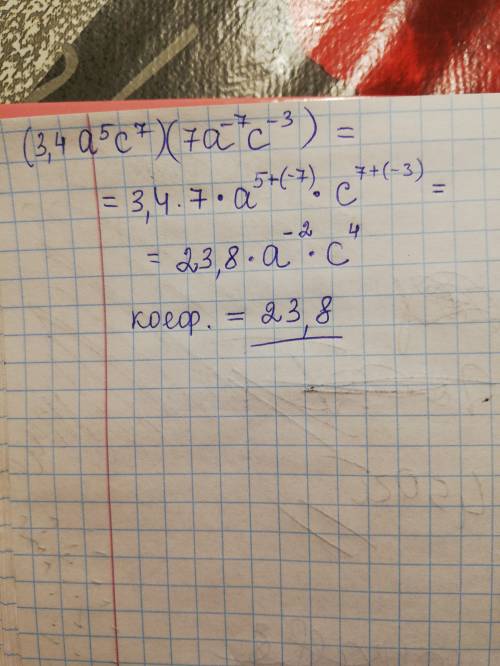 (3,4 a⁵c⁷)(7a⁻⁷c⁻³) =
= 3,4 · 7 · a⁵⁺⁽⁻⁷⁾ · c⁷⁺⁽⁻³⁾ =
= 23,8 · a⁻² · c⁴
коеф. = 23,8